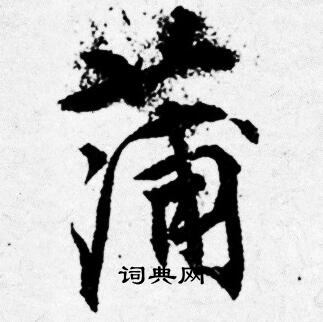 蒲
词典网